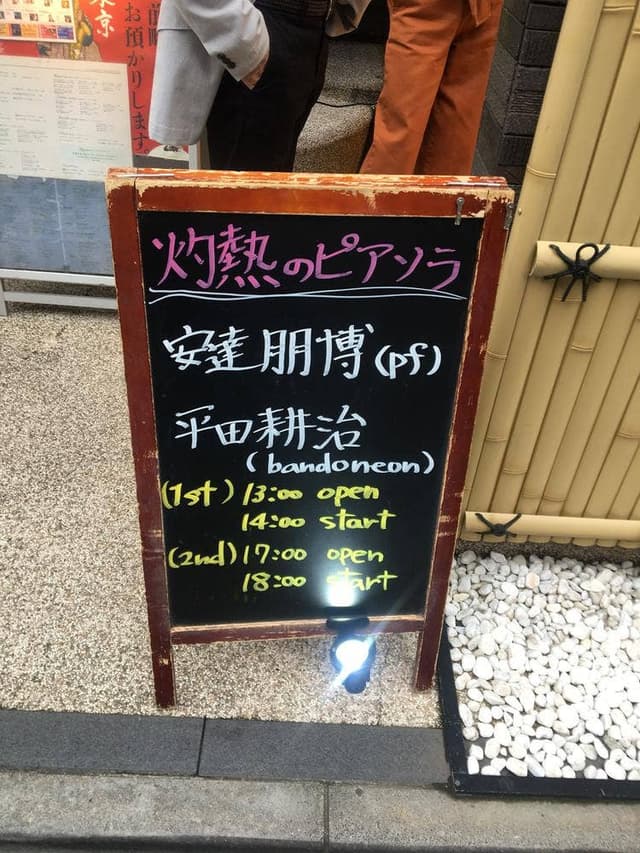 東京
お預かりします。
灼熱のピアソラ
安達朋博(pf)
平田耕治
(bandoneon)
(1st) 13:00 open
14:00 start
(2nd) 17:00 open
18:00 start